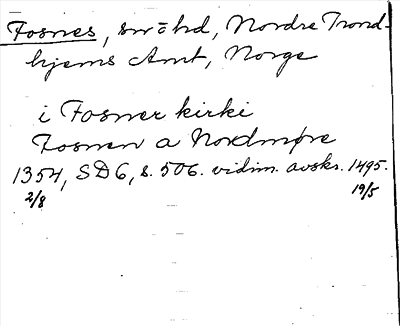 Fosnes, sn o hd, Nordre Trond-
hjems Amt, Norge
i Fosner kirki
Fosnen a Nordmøre
1354, SD6, s. 506. vidim. avskr. 1495.
2/8 19/5